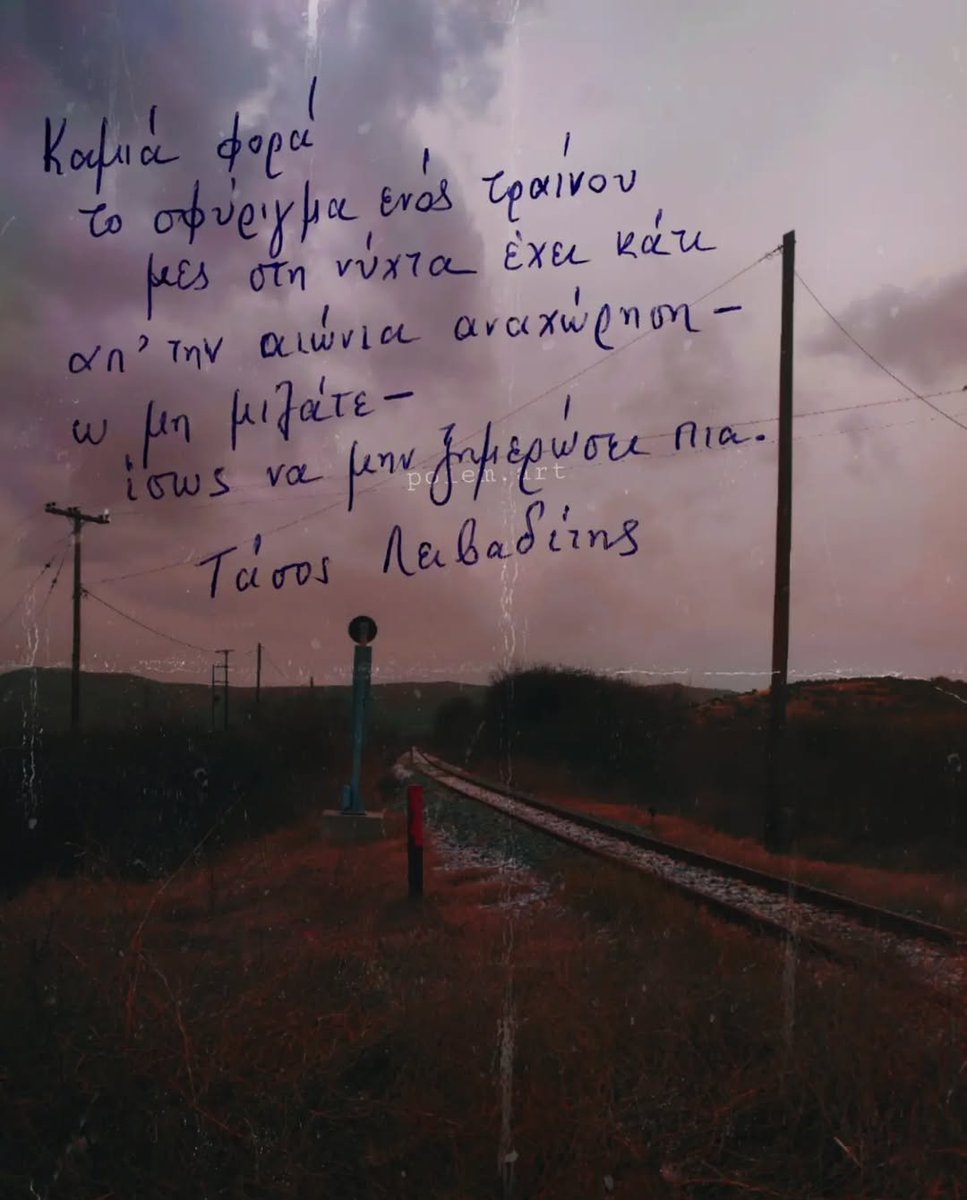 Καμιά φορά
το σφύριγμα ενός τραίνου
μες στη νύχτα έχει κάτι
απ' την αιώνια αναχώρηση –
ω μη μιλάτε –
ίσως να μην ξημερώσει πια.
poiem.art
Τάσος Λειβαδίτης